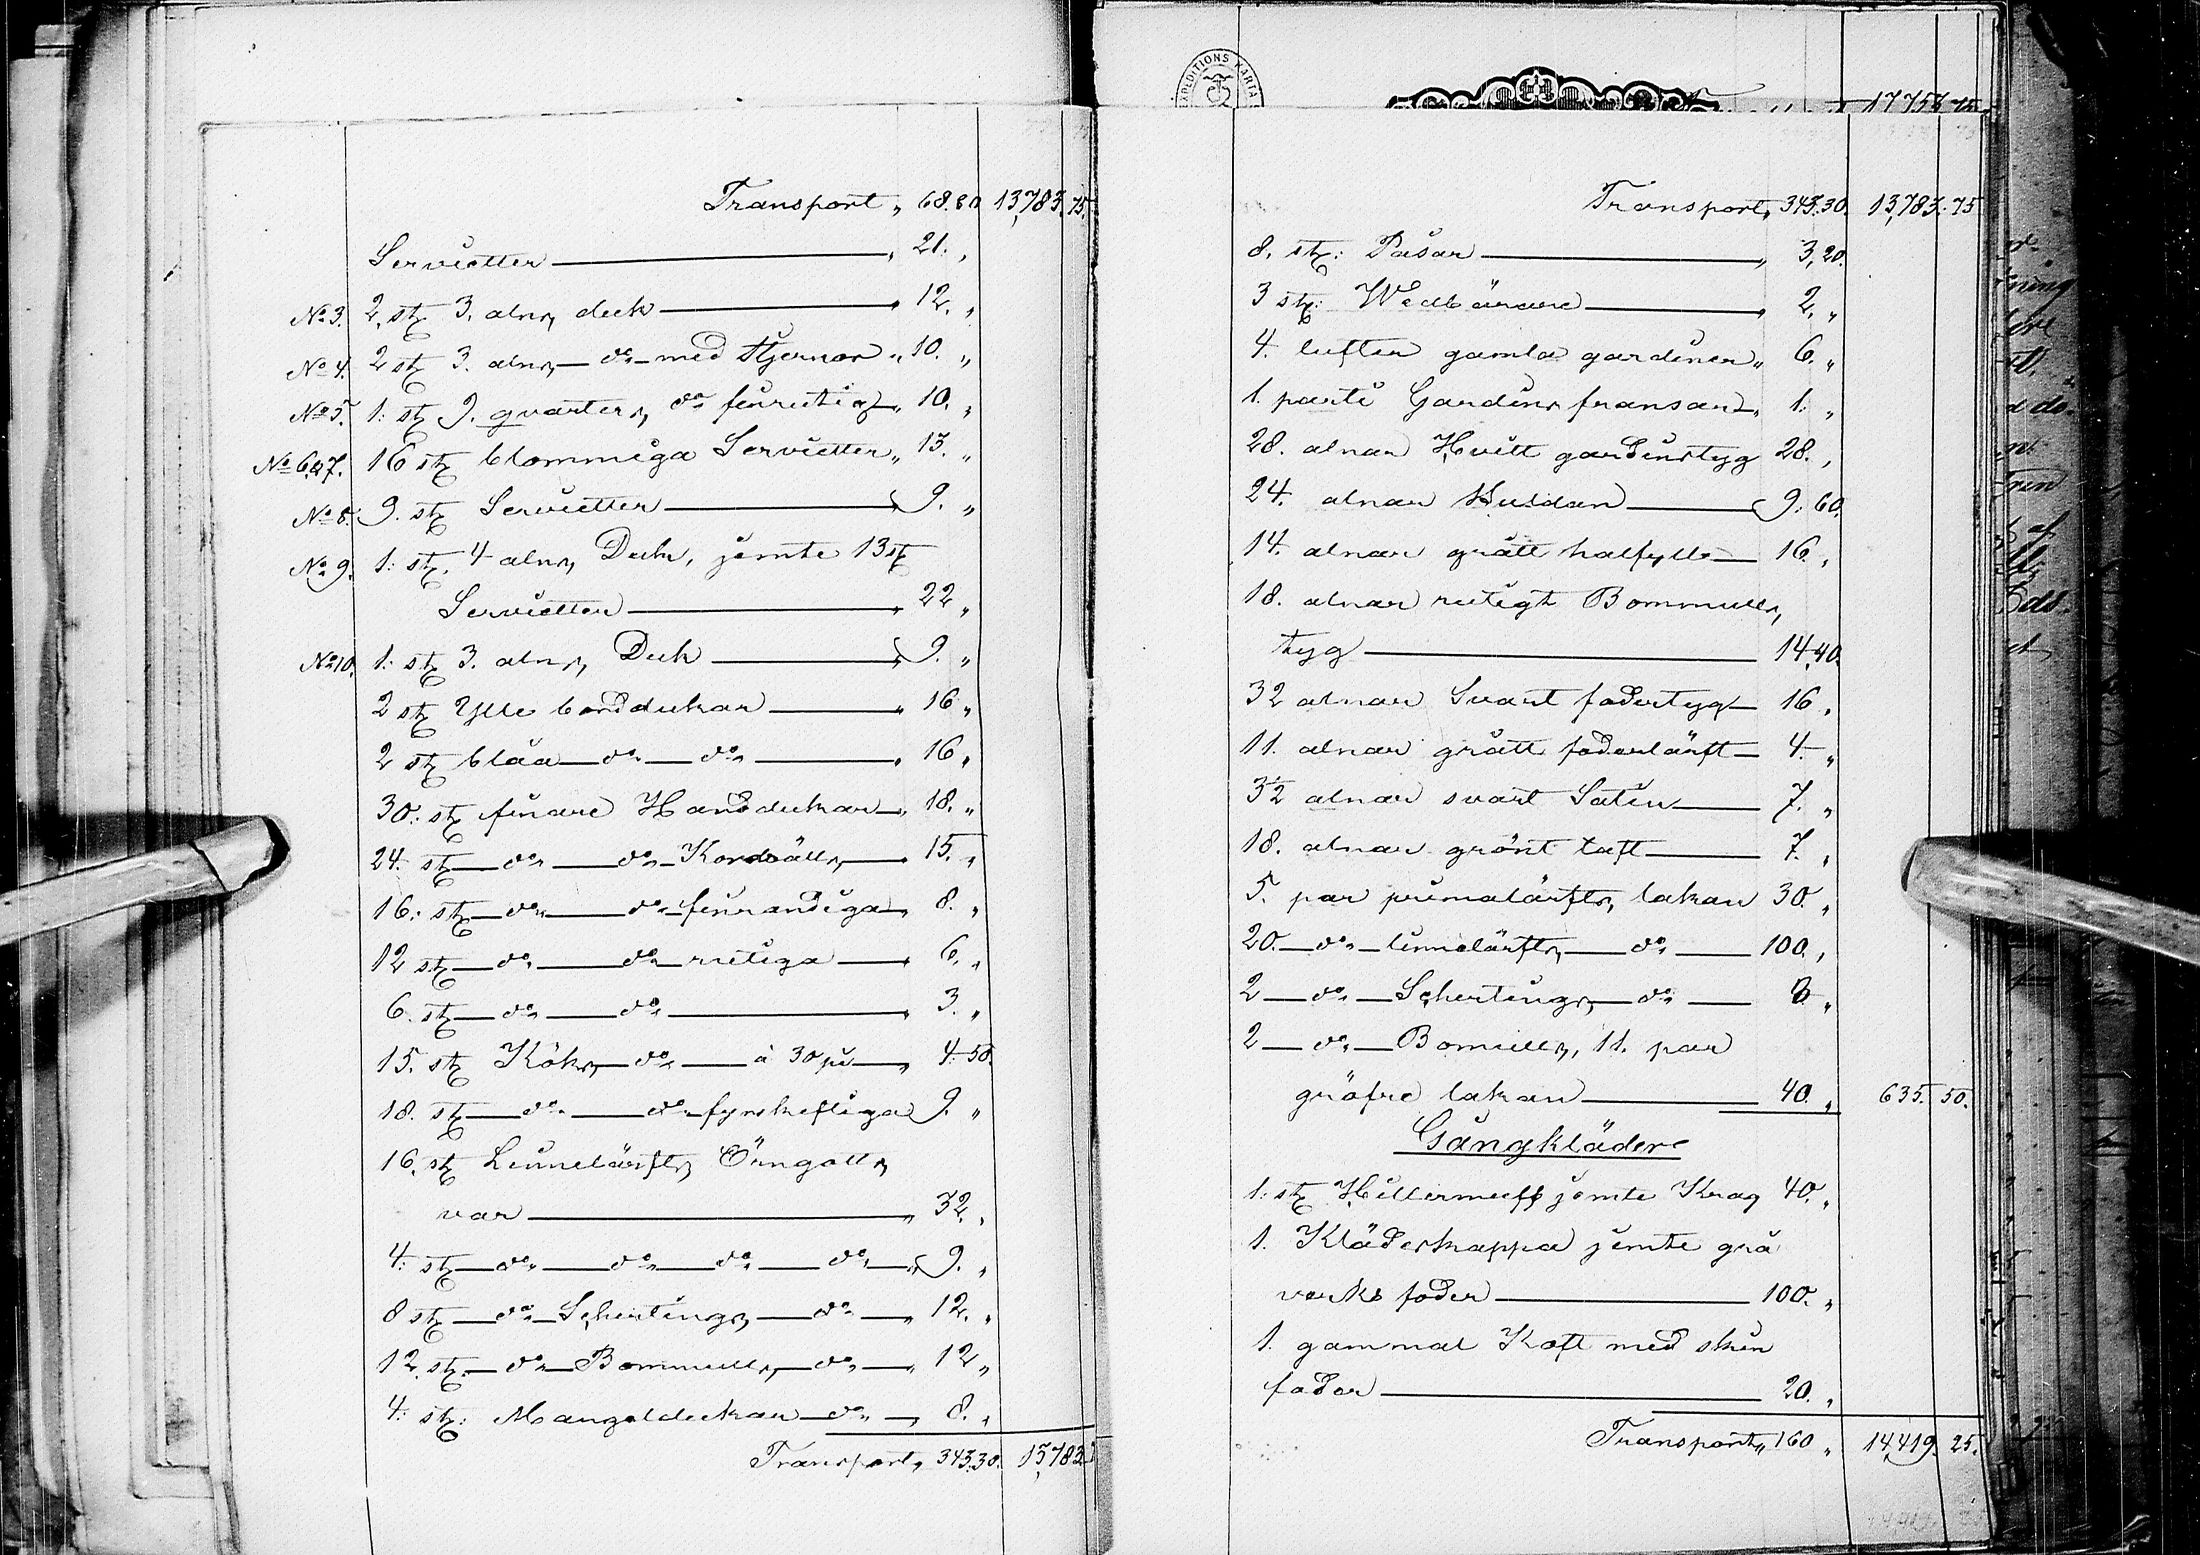 Transport „ 68.80 13,783.75.
Servietter „ 21. „
No 3. 2. st 3. alns, duk „ 12. „
No 4. 2 st 3. alns, do med Stjernor „ 10. „
No 5. 1: st 9. qvarters, do finrutig „ 10. „
No 6,&7. 16 st blommiga Servietter „ 13. „
No 8. 9. st Servietter „ 9. „
No 9. 1: st. 4 alns, Duk, jemte 13 st
Servietter „ 22 „
No 10. 1: st 3. alns, Duk „ 9. „
2 st Ylle borddukar „ 16 „
2 st blåa do do „ 16 „
30: st finare Handdukar „ 18. „
24. st do do Kordräll, „ 15. „
16: st do do finrandiga „ 8. „
12 st do do rutiga „ 6. „
6. st do do „ 3. „
15. st Köks, do à 30 „ 4.50.
18. st do do fyrskeftiga 9. „
16. st Linnelärfts, Örngotts,
var „ 32. „
4: st do do do do „ 9. „
8 st do Schertings, do „ 12. „
12. st. do Bommulls, do „ 12 „
4: st: Mangeldukar do „ 8. „
Transport „ 343.30. 13,783.
EXPEDITIONS KARTA
17758 75
Transport „ 343.30. 13,783:75
8. st: Påsar „ 3,20.
3 st: Wedbärare „ 2. „
4. lufter gamla gardiner „ 6. „
1. parti Gardins fransar „ 1: „
28. alnar Hvitt gardinstyg 28. „
24. alnar Buldan 9:60.
14. alnar grått halfylle 16. „
18. alnar rutigt Bommulls,
tyg 14,40.
32 alnar Svart fodertyg 16. „
11. alnar grått foderlärft 4. „
3½ alnar svart Satin 7. „
18. alnar grönt taft 7. „
5. par primalärfts, lakan 30. „
20. do linnelärfts, do 100. „
2 do Schertings, do 8 „
2 do Bomulls, 11. par
gröfre lakan 40. „ 635.50.
Gångkläder
1: st Hillermuff jemte Krag 40. „
1. Klädeskappa jemte grå
verks foder 100. „
1. gammal Koft med skin
foder 20. „
Transport „ 160 „ 14,419.25.